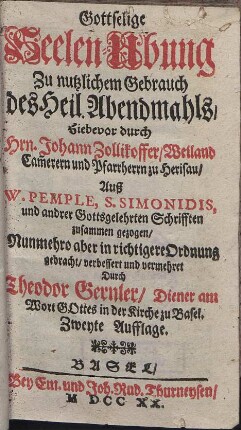 Gottselige
Seelen-Ubung
Zu nutzlichem Gebrauch
des Heil. Abendmahls/
Hiebevor durch
Hrn. Johann Zollikoffer/ Weiland
Camerern und Pfarrherrn zu Herisau/
Auß
W. PEMPLE, S. SIMONIDIS,
und andrer Gottsgelehrten Schrifften
zusammen gezogen/
Nunmehro aber in richtigere Ordnung
gebracht/ verbessert und vermehret
Durch
Theodor Gernler/ Diener am
Wort GOttes in der Kirche zu Basel.
Zweyte Aufflage.
BASEL/
Bey Em. und Joh. Rud. Thurneysen/
M DCC XX.